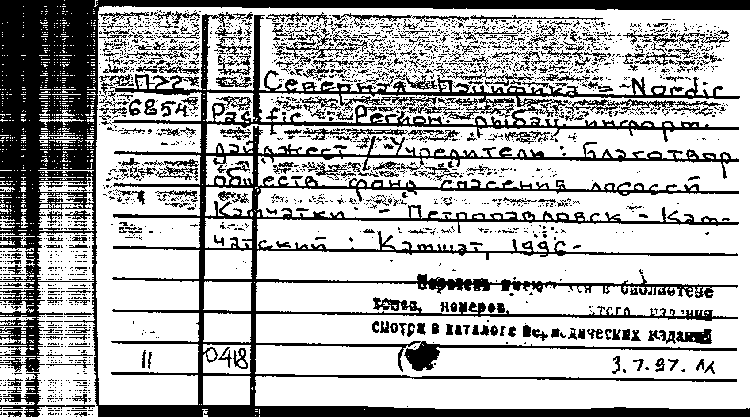 П22 Северная Пацифика = Nordic
6854 Pacific : Регион. рыбац. информ.
дайджест / Учредители : Благотвор.
обществ. фонд спасения лососей
Камчатки. - Петропавловск-Кам-
чатский : Камшат, 1996-
Перечень имеющихся в библиотеке
томов, номеров, этого издания
смотри в каталоге периодических изданий
11 0418 3.7.97.